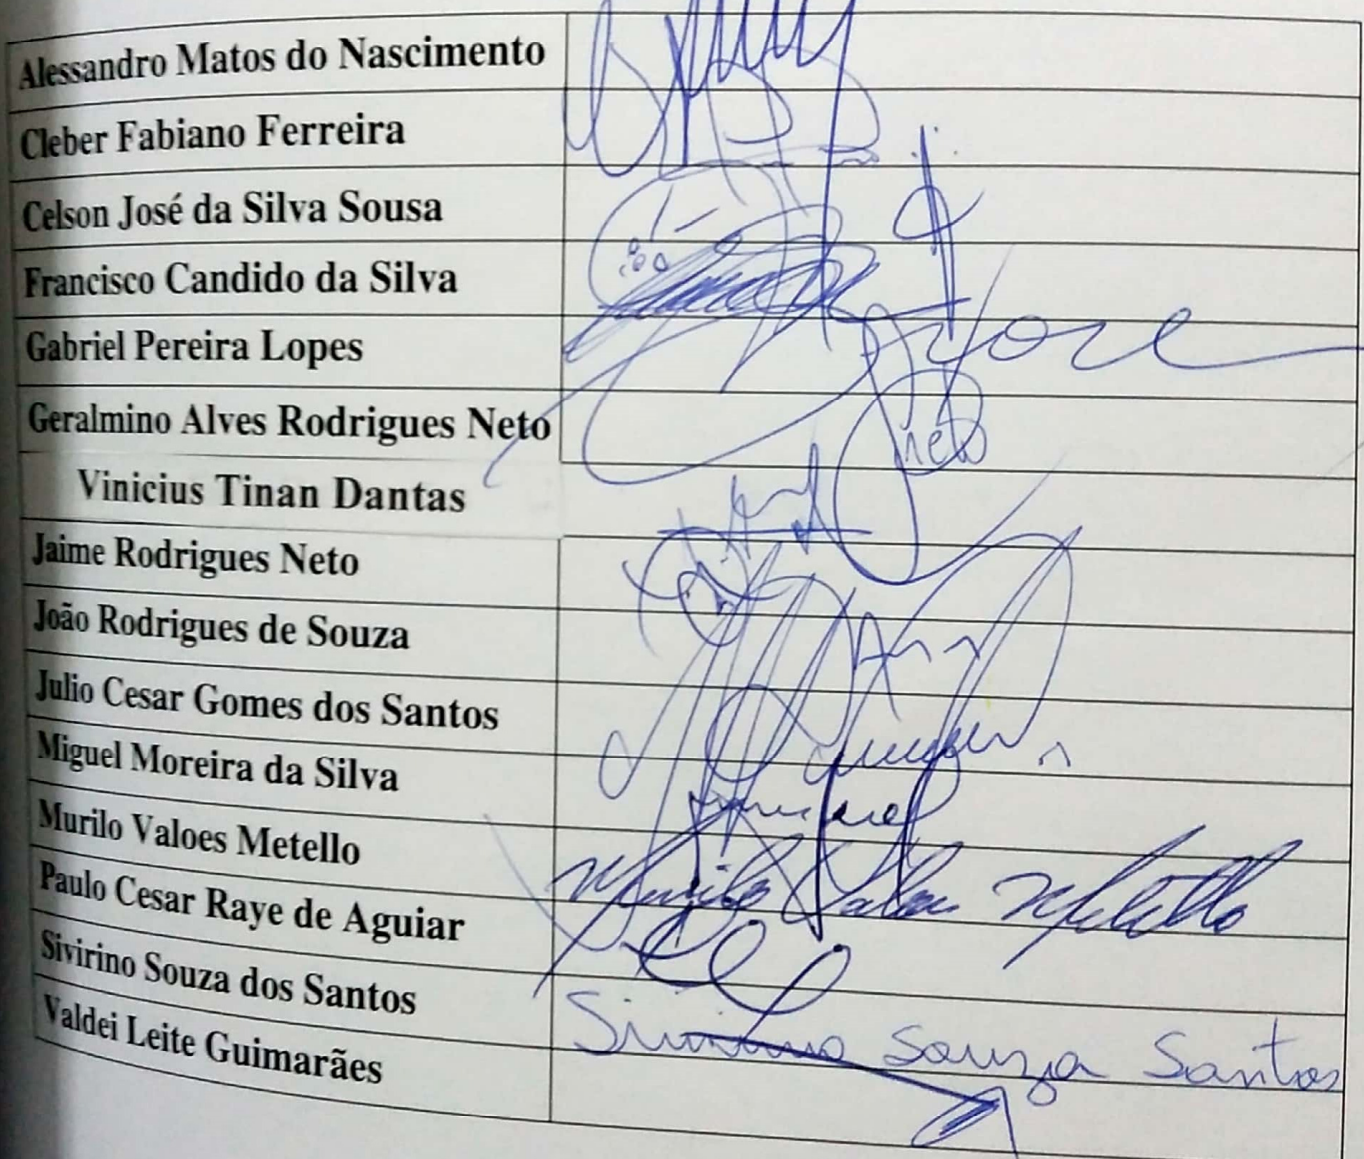 Alessandro Matos do Nascimento
Cleber Fabiano Ferreira
Celson José da Silva Sousa
Francisco Candido da Silva
Gabriel Pereira Lopes
Geralmino Alves Rodrigues Neto
neto
Vinicius Tinan Dantas
Jaime Rodrigues Neto
João Rodrigues de Souza
Julio Cesar Gomes dos Santos
Miguel Moreira da Silva
Murilo Valoes Metello Murilo Valoes Metello
Paulo Cesar Raye de Aguiar
Sivirino Souza dos Santos Sivirino Souza Santos
Valdei Leite Guimarães